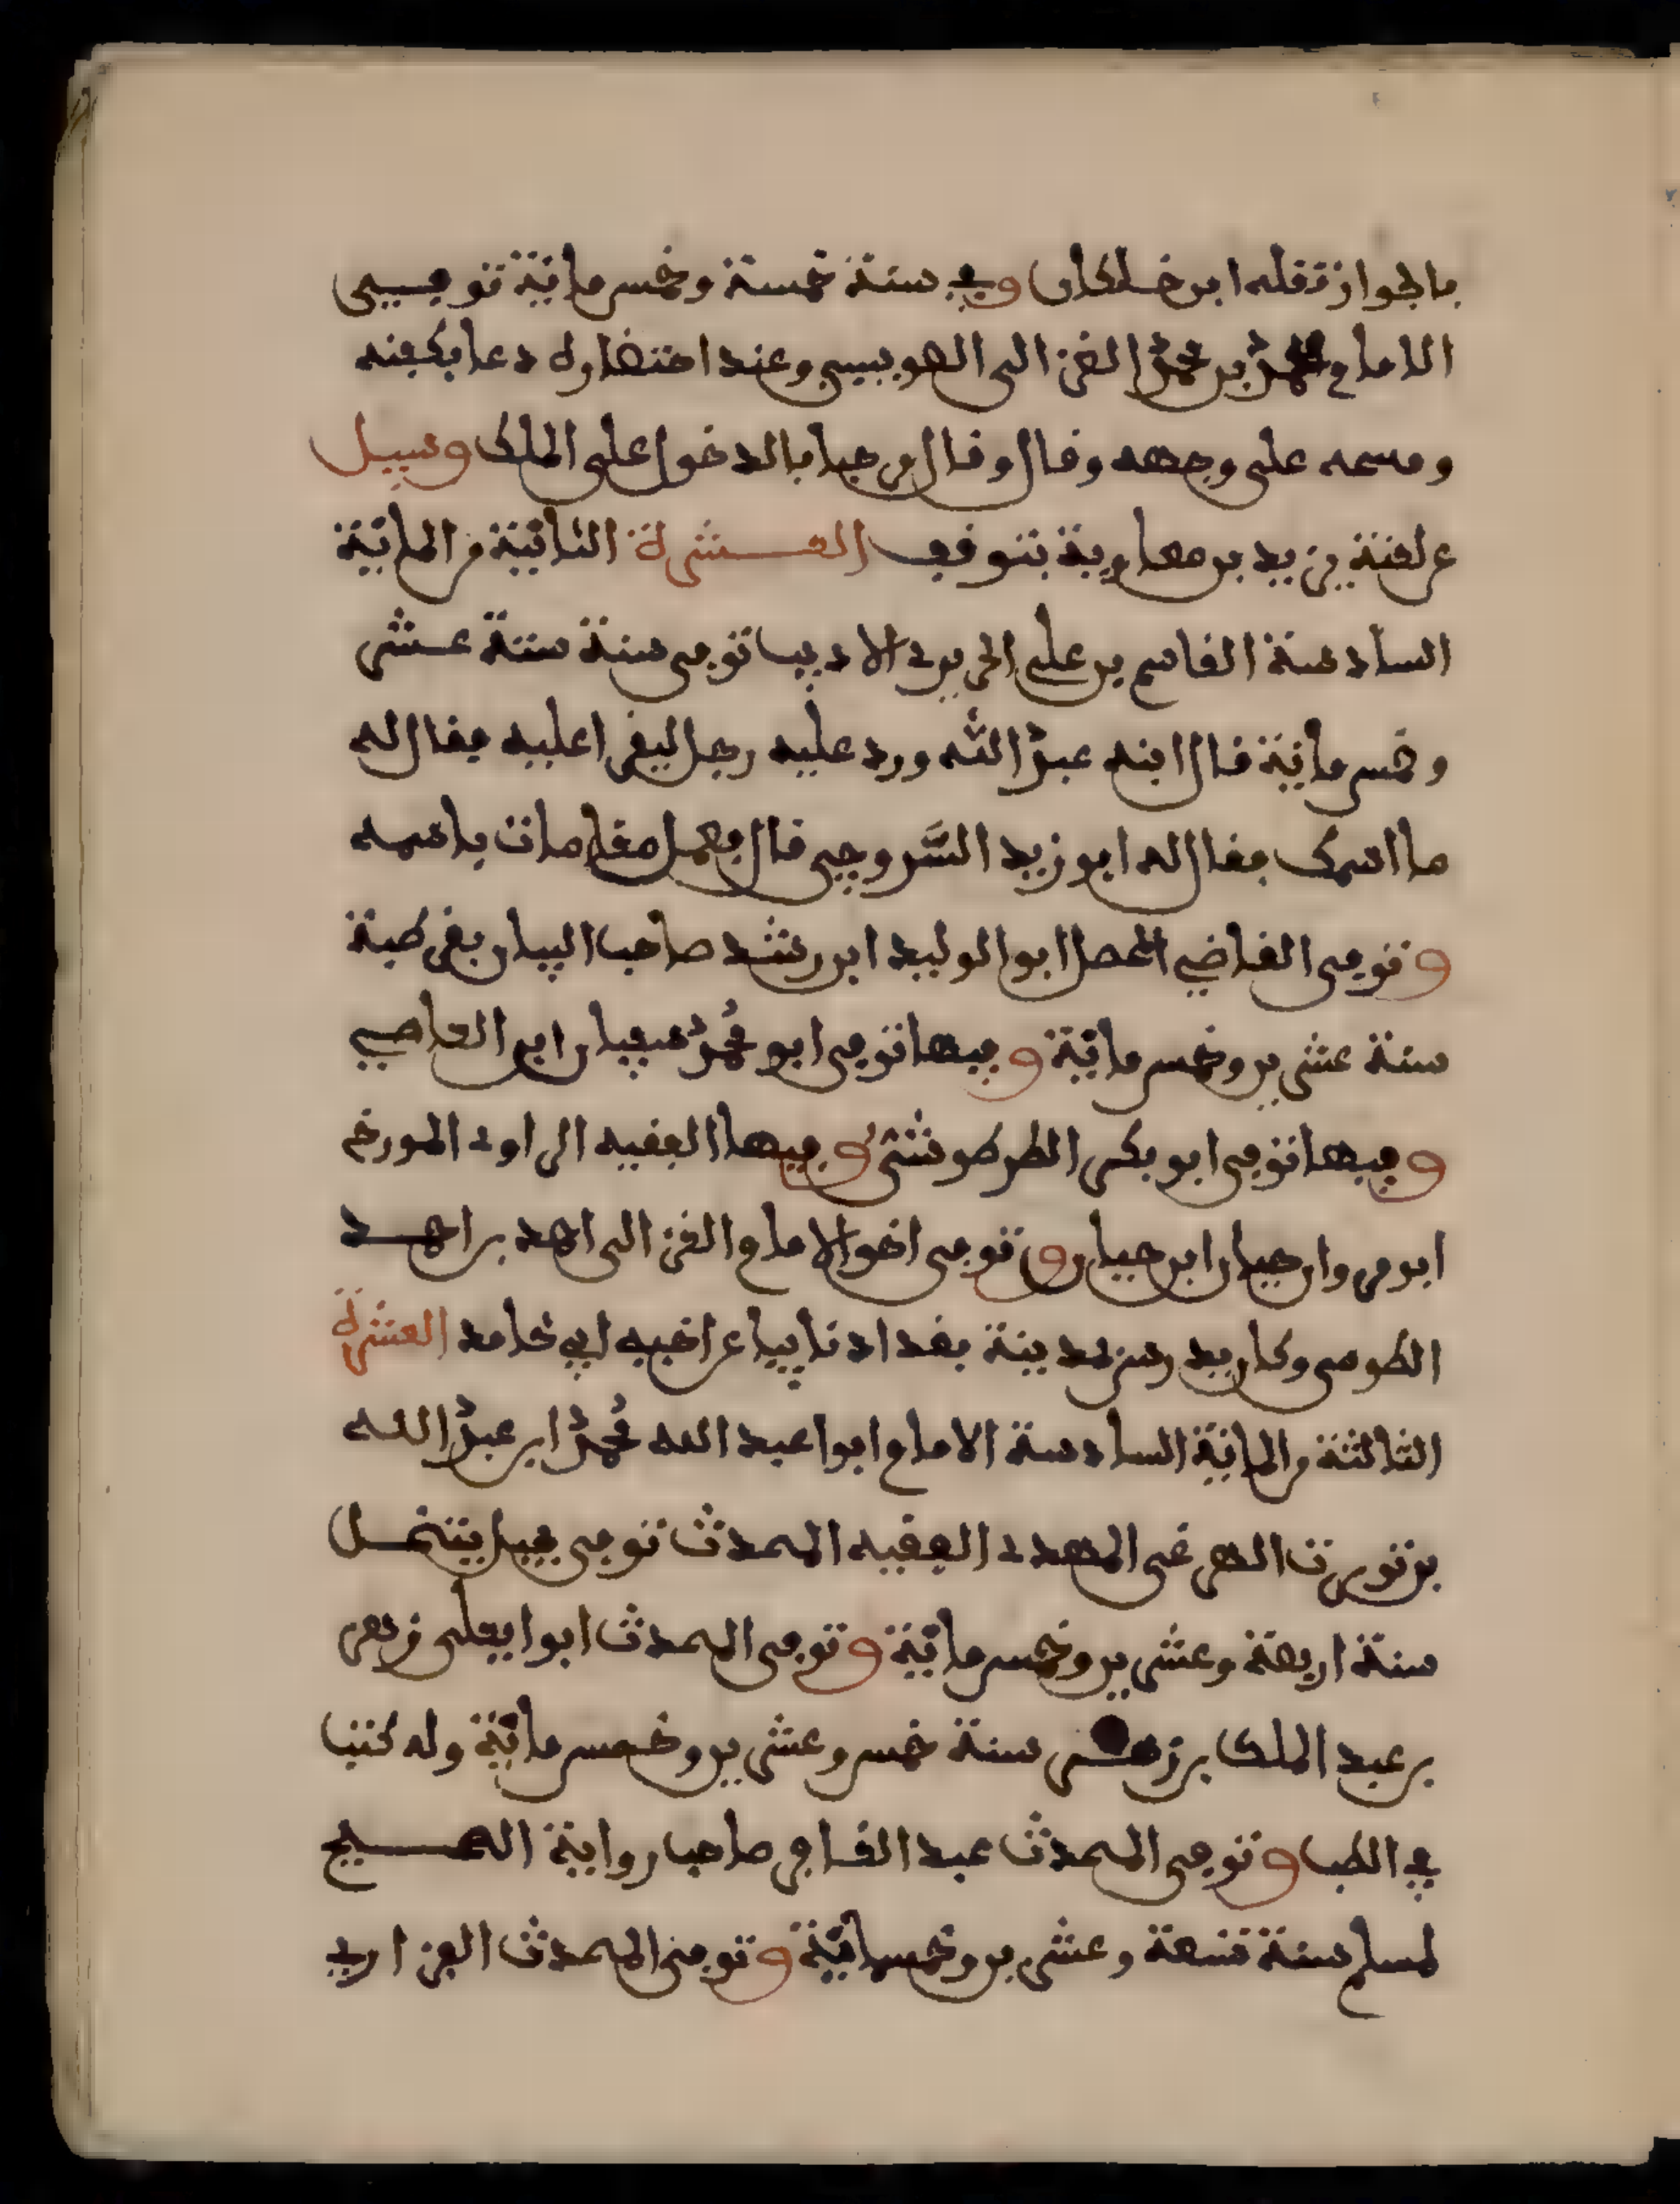 بالجواز نقله ابن خلكان وفي سنة خمسة وخمس مائة توفى
الامام محمد بن محمد الغزالى الصوفى وعند احتضاره دعا بكفنه
ومسحه على وجهه وقال وقال مرحبا بالدخول على الملك وسيل
عن لعنة يزيد بن معاوية بتوقف العشرة الثانية من المائة
السادسة القاسم بن على الحريرى الاديب توفى سنة ستة عشر
وخمس مائة قال ابنه عبد الله ورد عليه رجل ليقرا عليه فقال له
ما اسمك فقال له ابو زيد السروجى قال فعمل مقامات باسمه
وتوفى القاضى ابو الوليد ابن رشد صاحب البيان بقرطبة
سنة عشرين وخمس مائة وفيها توفى ابو محمد سفيان ابن العاصى
وفيها توفى ابو بكر الطرطوشى وفيها الفقيه الراوى المورخ
ابو مروان حيان ابن حيان وتوفى اخو الامام الغزالى احمد بن احمد
الطوسى وكان يدرس بمدينة بغداد نايبا عن اخيه ابى حامد العشرة
الثالثة من المائة السادسة الامام ابوا عبد الله محمد ابن عبد الله
بن تومرت الهرغى المهدى الفقيه المحدث توفى بجبل بتينمل
سنة اربعة وعشرين وخمس مائة وتوفى المحدث ابوا يعلى زهر
بن عبد الملك بن زهر سنة خمس وعشرين وخمس مائة وله كتب
في الطب وتوفى المحدث عبد الغافر صاحب رواية الصحيح
لمسلم سنة تسعة وعشرين وخمسمائة وتوفى المحدث الفزارى